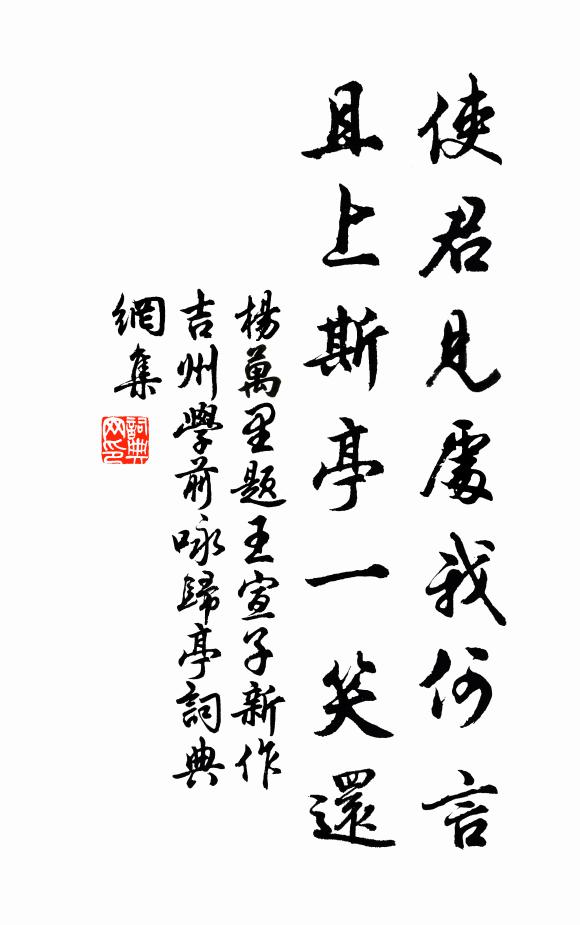 使君見處我何言
且上斯亭一笑還
楊萬里題王宣子新作
吉州學前咏歸亭詞典
網集
詞典
网印